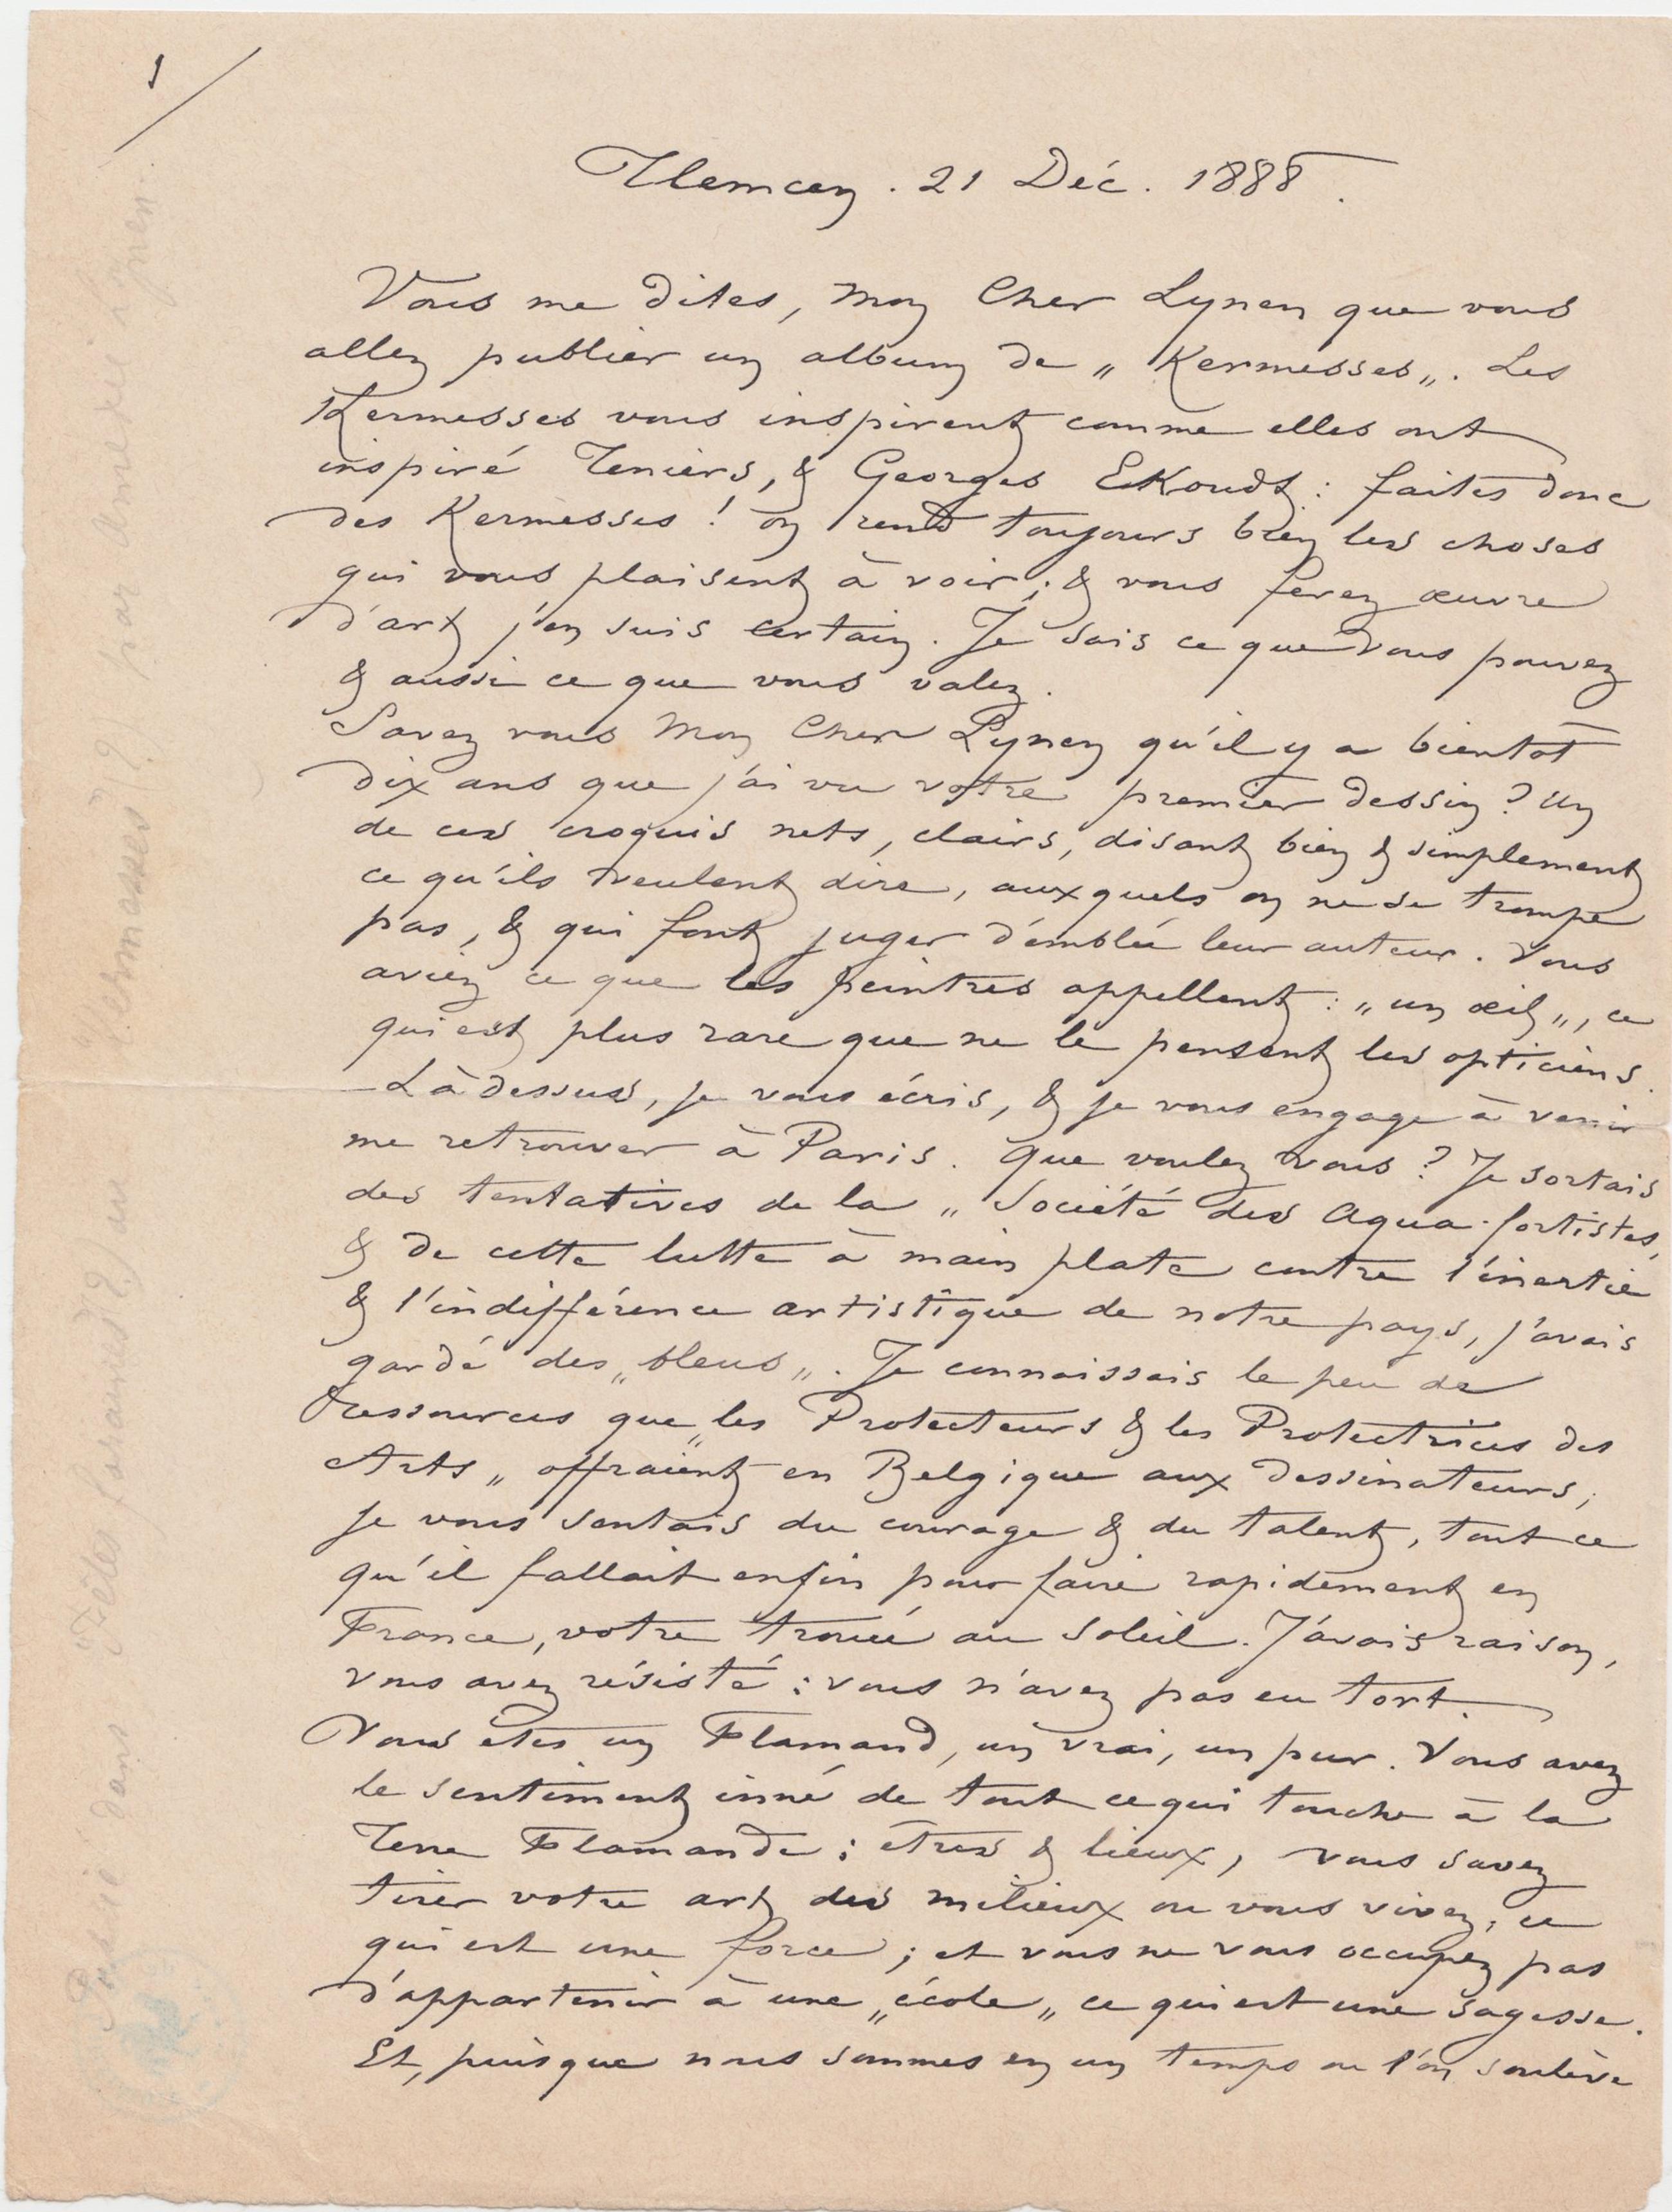 1/
Tlemcen. 21 Déc. 1888.
Vous me dites, Mon Cher Lynen que vous
allez publier un album de „ Kermesses „. Les
Kermesses vous inspirent comme elles ont
inspiré Teniers, & Georges EKoudt : faites donc
des Kermesses ! on rend toujours bien les choses
qui vous plaisent à voir ; & vous ferez œuvre
d'art j'en suis certain. Je sais ce que vous pouvez
& aussi ce que vous valez.
Savez vous Mon Cher Lynen qu'il y a bientôt
dix ans que j'ai vu votre premier dessin ? un
de ces croquis nets, clairs, disant bien & simplement
ce qu'ils veulent dire, auxquels on ne se trompe
pas, & qui font juger d'emblée leur auteur. Vous
aviez ce que les peintres appellent : „ un œil „, ce
qui est plus rare que ne le pensent les opticiens.
Là dessus, je vous écris, & je vous engage à venir
me retrouver à Paris. Que voulez vous ? Je sortais
des tentatives de la „ Société des Aqua-fortistes,
& de cette lutte à main plate contre l'inertie
& l'indifférence artistique de notre pays, j'avais
gardé des „ bleus „. Je connaissais le peu de
ressources que „ les Protecteurs & les Protectrices des
Arts „ offraient en Belgique aux dessinateurs ;
je vous sentais du courage & du talent, tout ce
qu'il fallait enfin pour faire rapidement en
France, votre trouée au soleil. J'avais raison,
vous avez résisté : vous n'avez pas eu tort.
Vous êtes un Flamand, un vrai, un pur. Vous avez
le sentiment inné de tout ce qui touche à la
Terre Flamande ; êtres & lieux, vous savez
tirer votre art des milieux ou vous vivez, ce
qui est une force ; et vous ne vous occupez pas
d'appartenir à une „ école „ ce qui est une sagesse.
Et, puisque nous sommes en un temps ou l'on soulève